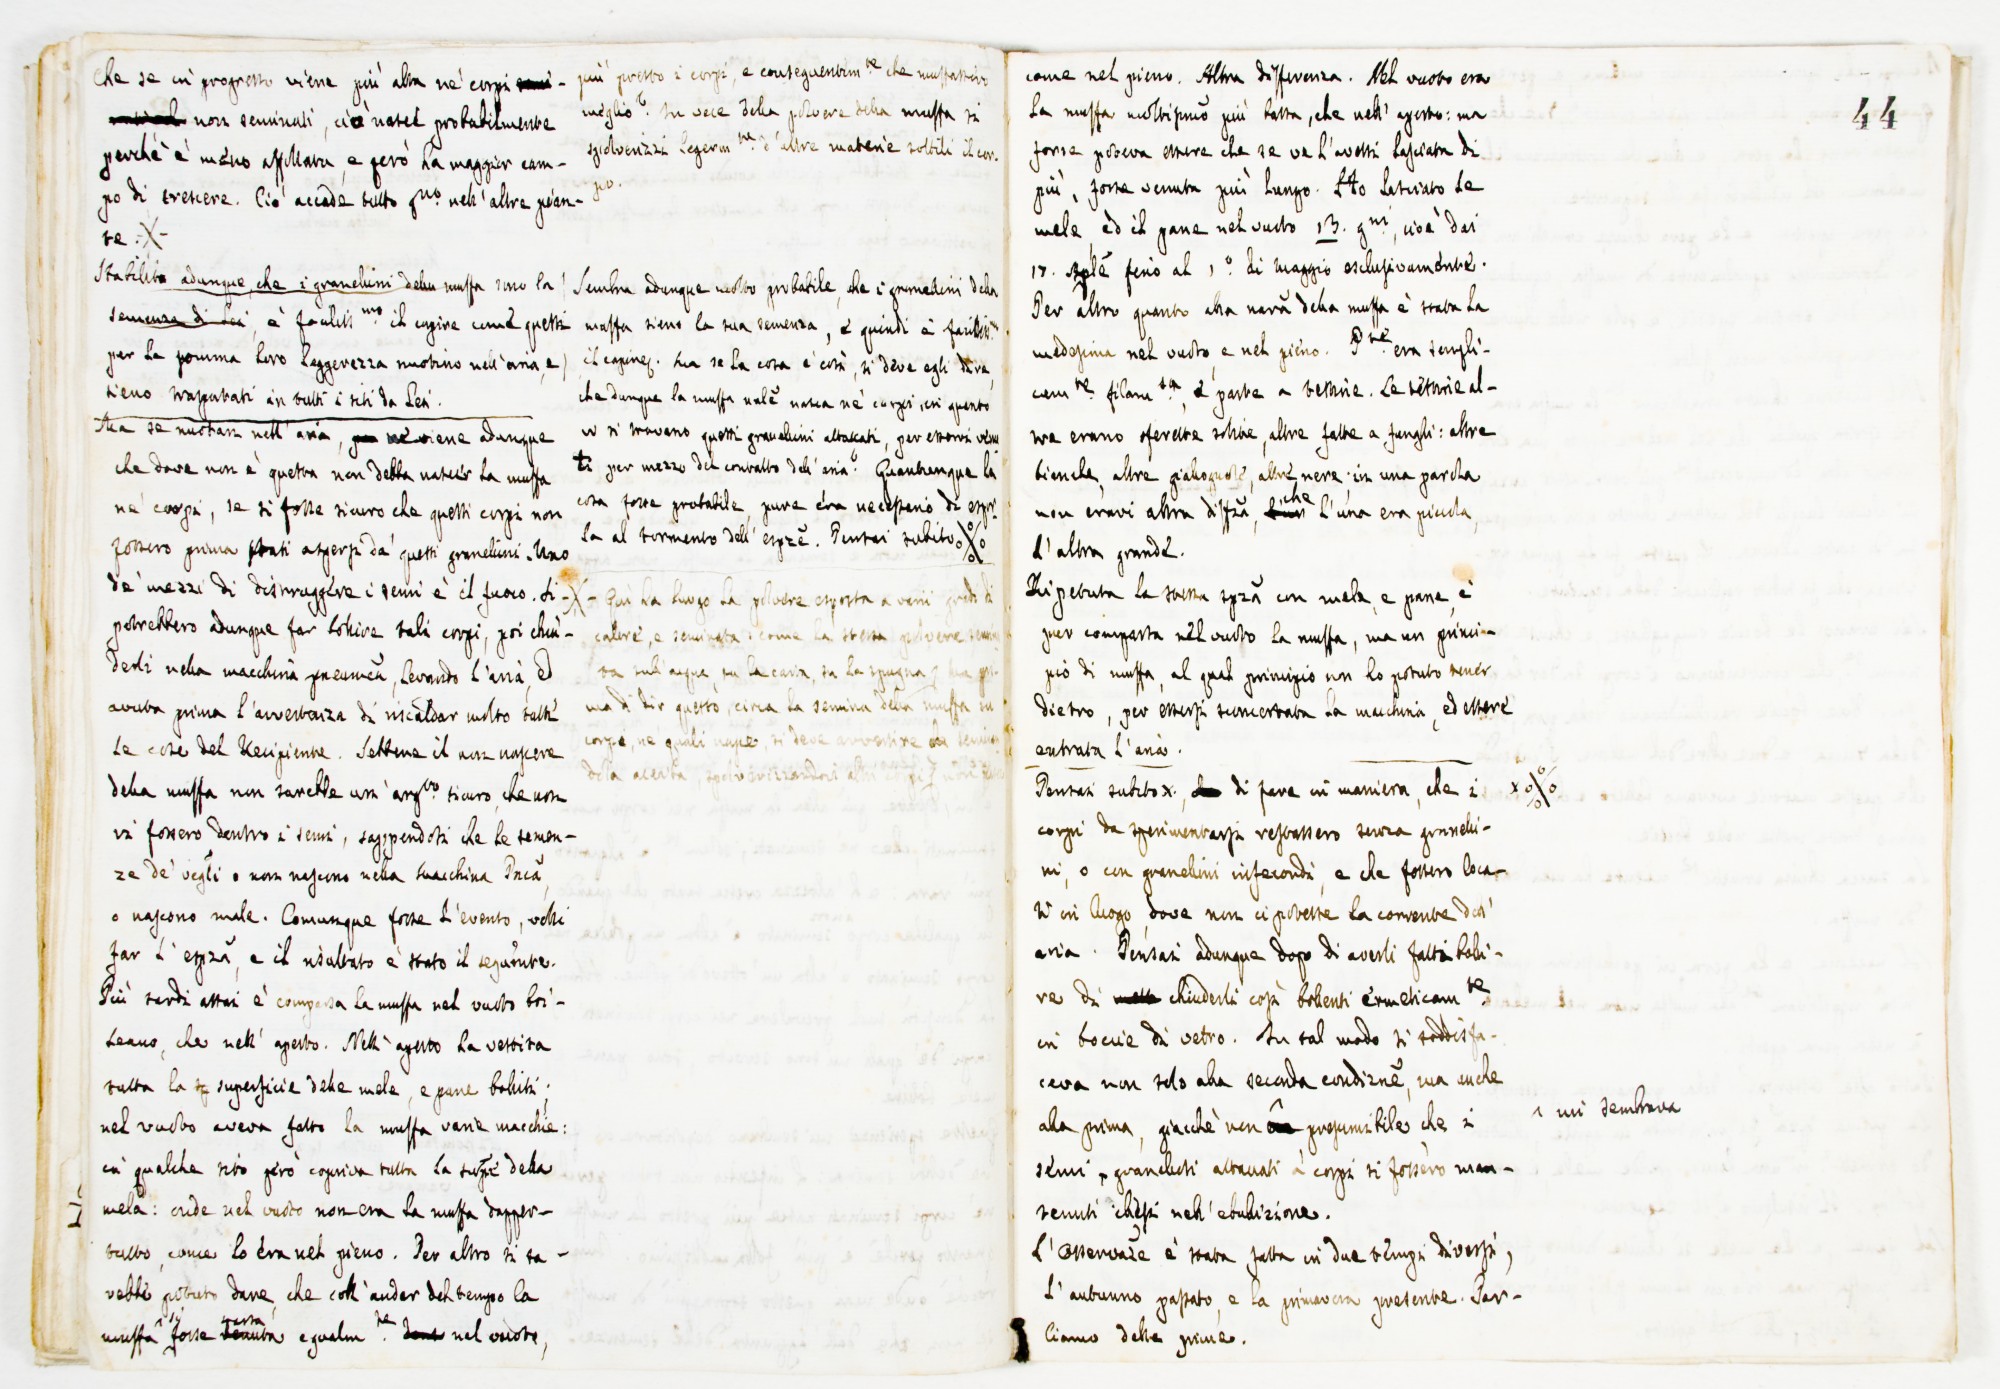 che se in progresso viene più alta ne' corpi
non seminati, ciò nasce probabilmente
perché è meno affollata, e però ha maggior cam-
po di crescere. Ciò accade tutto gno. nell'altre pian-
te.
Stabilito adunque, che i granellini della muffa sono la
semenza di Lei, è facilissmo il capire come questi
per la somma loro leggerezza nuotino nell'aria, e
sieno trasportati in tutti i siti da Lei.
Ma se nuotan nell'aria, ne viene adunque
che dove non è questa non debba nascer la muffa
ne' corpi, se si fosse sicuro che questi corpi non
fossero prima stati aspersi da' questi granellini. Uno
de' mezzi di distruggere i semi è il fuoco. Si
potrebbero adunque far bollire tali corpi, poi chiu-
derli nella macchina pneumca, levando l'aria, ed
avuta prima l'avvertenza di riscaldar molto tutte
le cose del Recipiente. Sebbene il non nascere
della muffa non sarebbe un' argvo. sicuro, che non
vi fossero dentro i semi, sappendosi che le semen-
ze de' vegli o non nascono nella macchina Pnca,
o nascono male. Comunque fosse l'evento, volli
far l'espza, e il risultato è stato il seguente.
Più tardi assai è comparsa la muffa nel vuoto boi-
leano, che nell' aperto. Nell' aperto ha vestita
tutta la superficie delle mele, e pane bolliti;
nel vuoto aveva fatto la muffa varie macchie:
in qualche sito però copriva tutta la supe della
mela: onde nel vuoto non era la muffa dapper-
tutto, come lo era nel pieno. Per altro si sa-
rebbe potuto dare, che coll' andar del tempo la
muffa si fosse egualmte. nel vuoto,
più presto i corpi, e conseguentemte che muffassero
meglio. In vece della polvere della muffa si
spolverizzi legermte. d'altre materie sottili il cor-
po.
Sembra adunque molto probabile, che i granellini della
muffa sieno la sua semenza, e quindi è facilissmo
il capire. Ma se la cosa è così, si deve egli dire,
che dunque la muffa nale nasca ne' corpi, in quanto
vi si trovano questi granellini attaccati, per esservi venu
ti per mezzo del contatto dell' aria. Quantunque la
cosa fosse probabile, pure era necessario di espor
la al tormento dell' espze. Pensai subito
Qui ha luogo la polvere esposta a varii gradi di
calore, e seminata: come la stessa polvere semina
ta sull'acqua, su la carta, su la spugna. Ma pri-
ma di dir questo, circa la semina della muffa su
corpi, ne' quali nasce, si deve avvertire
44
come nel pieno. Altra differenza. Nel vuoto era
la muffa moltissmo più bassa, che nell' aperto: ma
forse poteva essere che se ve l'avessi lasciata di
più, fosse venuta più lunga. Ho lasciato le
mele, ed il pane nel vuoto 13. gni, cioè dai
17. Aple fino al 1°. di Maggio esclusivamente.
Per altro quanto alla nara della muffa è stata la
medesima nel vuoto, e nel pieno. Pte. era sempli-
cemte filamsa, e parte a testine. Le testine al-
tre erano sferette solite, altre fatte a funghi: altre
bianche, altre giallognole, altre nere: in una parola
non eravi altra diffza, che l'una era piccola,
l'altra grande.
Ripetuta la stessa spza con mele, e pane, è
pur comparsa nel vuoto la muffa, ma un princi-
pio di muffa, al qual principio non ho potuto tener
dietro, per essersi sconcertata la macchina, ed essere
entrata l'aria.
Pensai subito x, di fare in maniera, che i
corpi da sperimentarsi restassero senza granelli-
ni, o con granellini infecondi, e che fossero loca-
ti in luogo, dove non ci potesse la corrente dell'
aria. Pensai adunque dopo di averli fatti bolli-
re di chiuderli così bollenti ermeticamte
in boccie di vetro. In tal modo si soddisfa-
ceva non solo alla seconda condizne, ma anche
alla prima, giacchè non ^ presumibile che i
semi, granelletti attaccati a' corpi si fossero man-
tenuti illesi nell' ebullizione.
^ mi sembrava
L'Osservaze è stata fatta in due tempi diversi,
l'autunno passato, e la primavera presente. Par-
liamo delle prime.